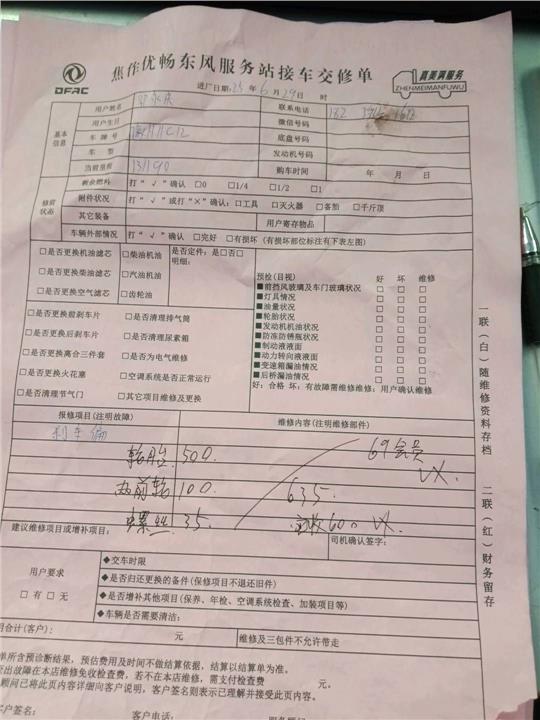 DFAC
焦作优畅东风服务站接车交修单
真美满服务
ZHENMEIMANFUWU
进厂日期:25年6月29日 时
基本信息
用户姓名
联系电话 182
用户生日
微信号码
车牌号
底盘号码
车型
发动机号码
当前里程 131190
购车时间 年 月 日
修前状态
剩余燃料 打“√”确认 □0 □1/4 □1/2 □1
附件状况 打“√”或打“×”确认:□工具 □灭火器 □备胎 □千斤顶
其它装备
用户寄存物品
车辆外部情况 打“√”确认 □完好 □有损坏 (有损坏部位标注有下表左图)
□是否更换机油滤芯 □柴油机油 是否定件:是□否□
明细:
□是否更换柴油滤芯 □汽油机油
□是否更换空气滤芯 □齿轮油
□是否更换前刹车片 □是否清理排气筒
□是否更换后刹车片 □是否清理尿素箱
□是否更换离合三件套 □是否为电气维修
□是否更换火花塞 □空调系统是否正常运行
□是否清理节气门 □其它项目维修及更换
预检(目视) 好 坏 维修
■前挡风玻璃及车门玻璃状况 □ □ □
■灯具情况 □ □ □
■油量状况 □ □ □
■轮胎状况 □ □ □
■发动机机油状况 □ □ □
■防冻防锈瓶状况 □ □ □
■制动液液面 □ □ □
■动力转向液液面 □ □ □
■变速箱漏油情况 □ □ □
■后桥漏油情况 □ □ □
好:合格 坏:有故障需维修维修:用户确认维修
报修项目(注明故障)
维修内容(注明维修部件)
刹车偏
轮胎 500.
69会员
两前轮 100.
635.
螺丝 35.
实收600
建议维修项目或增补项目:
司机确认签字:
用户要求
□有□无
◆交车时限
◆是否归还更换的备件(保修项目不退还旧件)
◆是否增补其他项目(保养、年检、空调系统检查、加装项目等)
◆车辆是否需要清洁:
用合计(客户): 元
维修及三包件不允许带走
单所含预诊断结果,预估费用及时间不做结算依据,结算以结算单为准。
出故障在本店维修免收检查费,若不在本店维修,需支付检查费 元。
顾问已将此页内容详细向客户说明,客户签名则表示已理解并接受此页内容。
客户签名: 客户电话:
一联(白)随维修资料存档
二联(红)财务留存